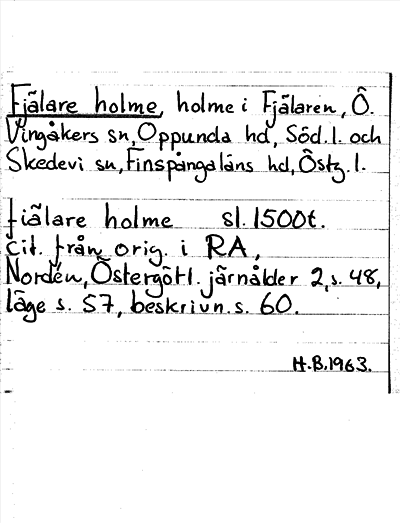 Fjälare holme, holme i Fjälaren, Ö.
Vingåkers sn, Oppunda hd, Söd. l. och
Skedevi sn, Finspångaläns hd, Östg. l.
fiälare holme sl. 1500t.
cit. från orig. i RA,
Nordén, Östergötl. järnålder 2, s. 48,
läge s. 57, beskrivn. s. 60.
H.B. 1963.